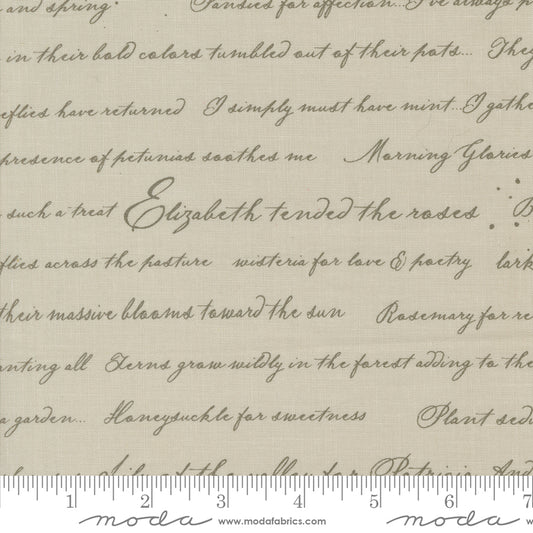 and spring Pansies for affection...I've always p
in their bold colors tumbled out of their pots... They
eflies have returned I simply must have mint...I gathe
presence of petunias soothes me Morning Glories
such a treat Elizabeth tended the roses B
flies across the pasture wisteria for love & poetry lark
their massive blooms toward the sun Rosemary for re
anting all Ferns grow wildly in the forest adding to the
a garden... Honeysuckle for sweetness Plant sedu
of the valley for Patricia And
1 2 3 4 5 6 7
moda www.modafabrics.com moda